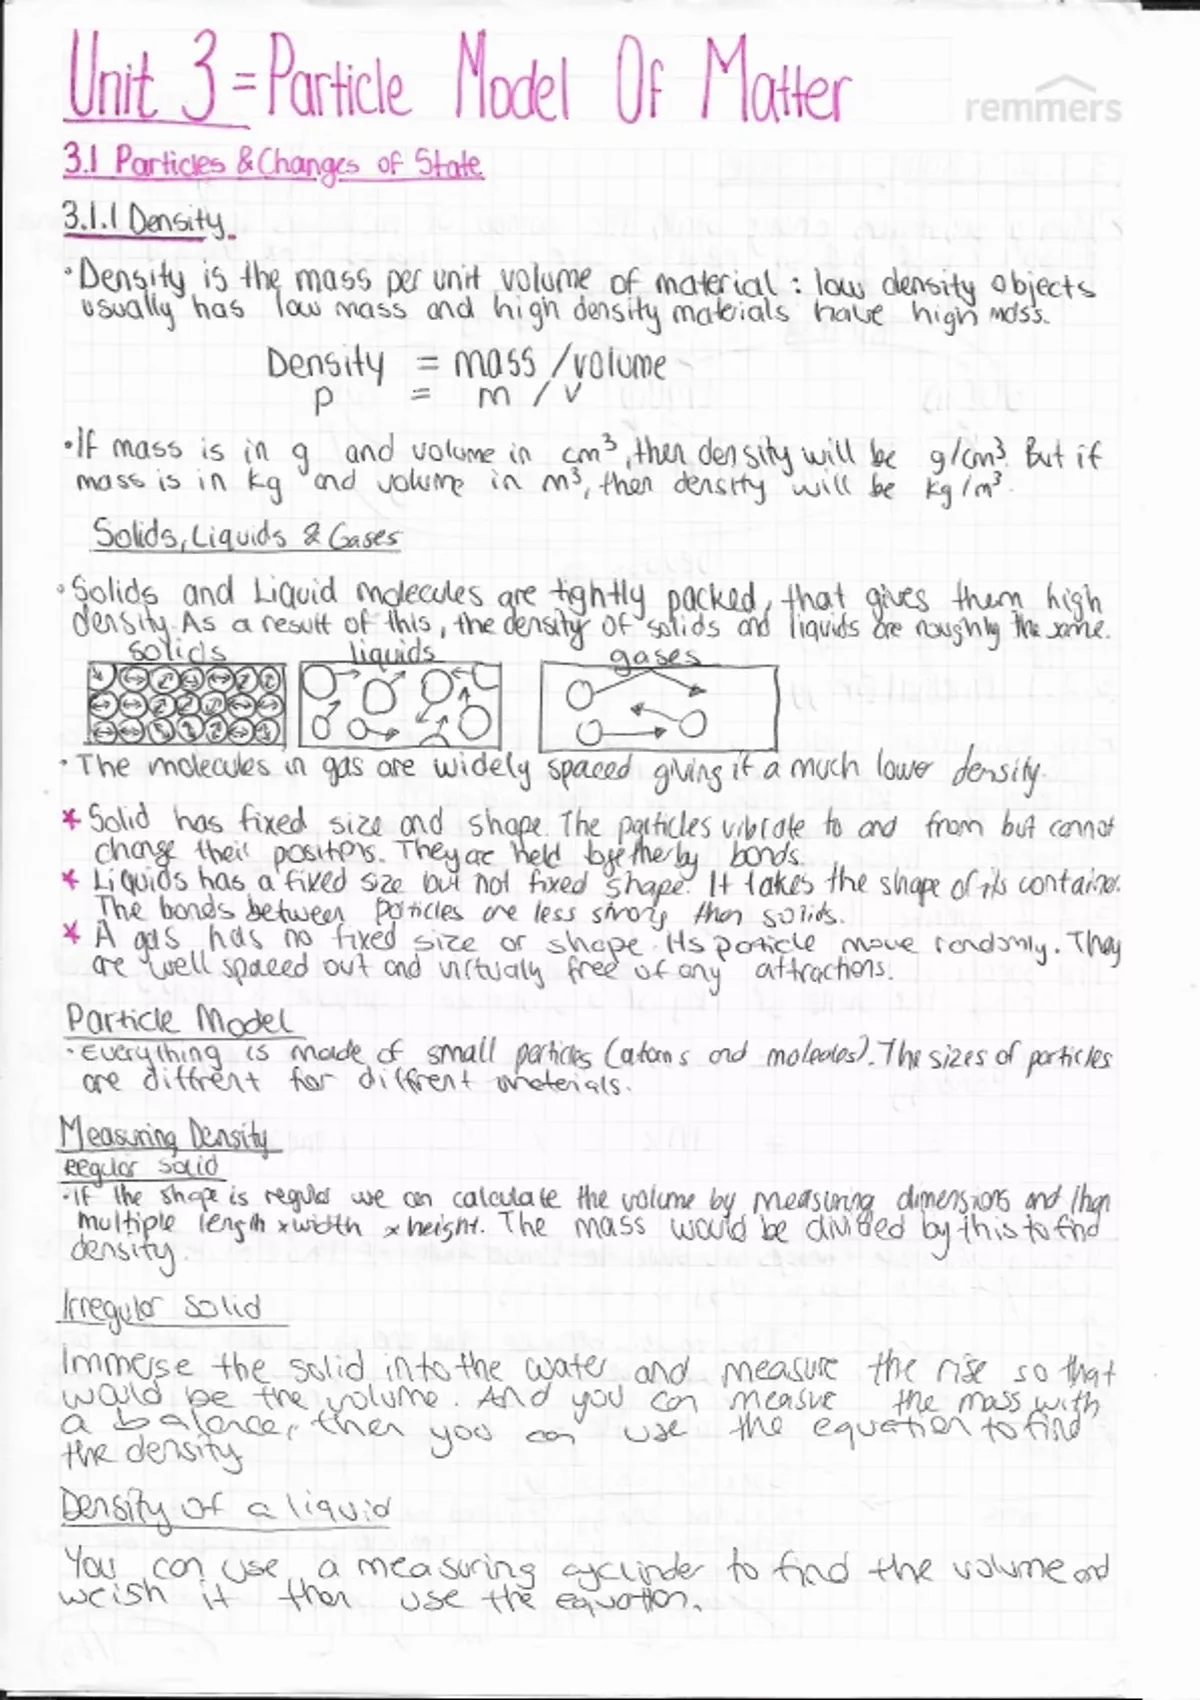 Unit 3 = Particle Model Of Matter
remmers
3.1 Particles & Changes of State
3.1.1 Density.
• Density is the mass per unit volume of material : low density objects
usually has low mass and high density materials have high mass.
Density = mass / volume
p = m / v
• If mass is in g and volume in cm³, then density will be g/cm³. But if
mass is in kg and volume in m³, then density will be kg/m³.
Solids, Liquids & Gases
• Solids and Liquid molecules are tightly packed, that gives them high
density. As a result of this, the density of solids and liquids are roughly the same.
solids liquids gases
• The molecules in gas are widely spaced giving it a much lower density.
* Solid has fixed size and shape. The particles vibrate to and from but cannot
change their positions. They are held together by bonds.
* Liquids has a fixed size but not fixed shape. It takes the shape of its container.
The bonds between particles are less strong then solids.
* A gas has no fixed size or shape. Its particle move randomly. They
are well spaced out and virtualy free of any attractions.
Particle Model
• Everything is made of small particles (atoms and molecules). The sizes of particles
are diffrent for diffrent materials.
Measuring Density
Regular solid
• If the shape is regular we can calculate the volume by measuring dimensions and then
multiple length x width x height. The mass would be divided by this to find
density.
Irregular solid
Immerse the solid into the water and measure the rise so that
would be the volume. And you can measure the mass with
a balance, then you can use the equation to find
the density
Density of a liquid
You can use a measuring cyclinder to find the volume and
weish it then use the equation.